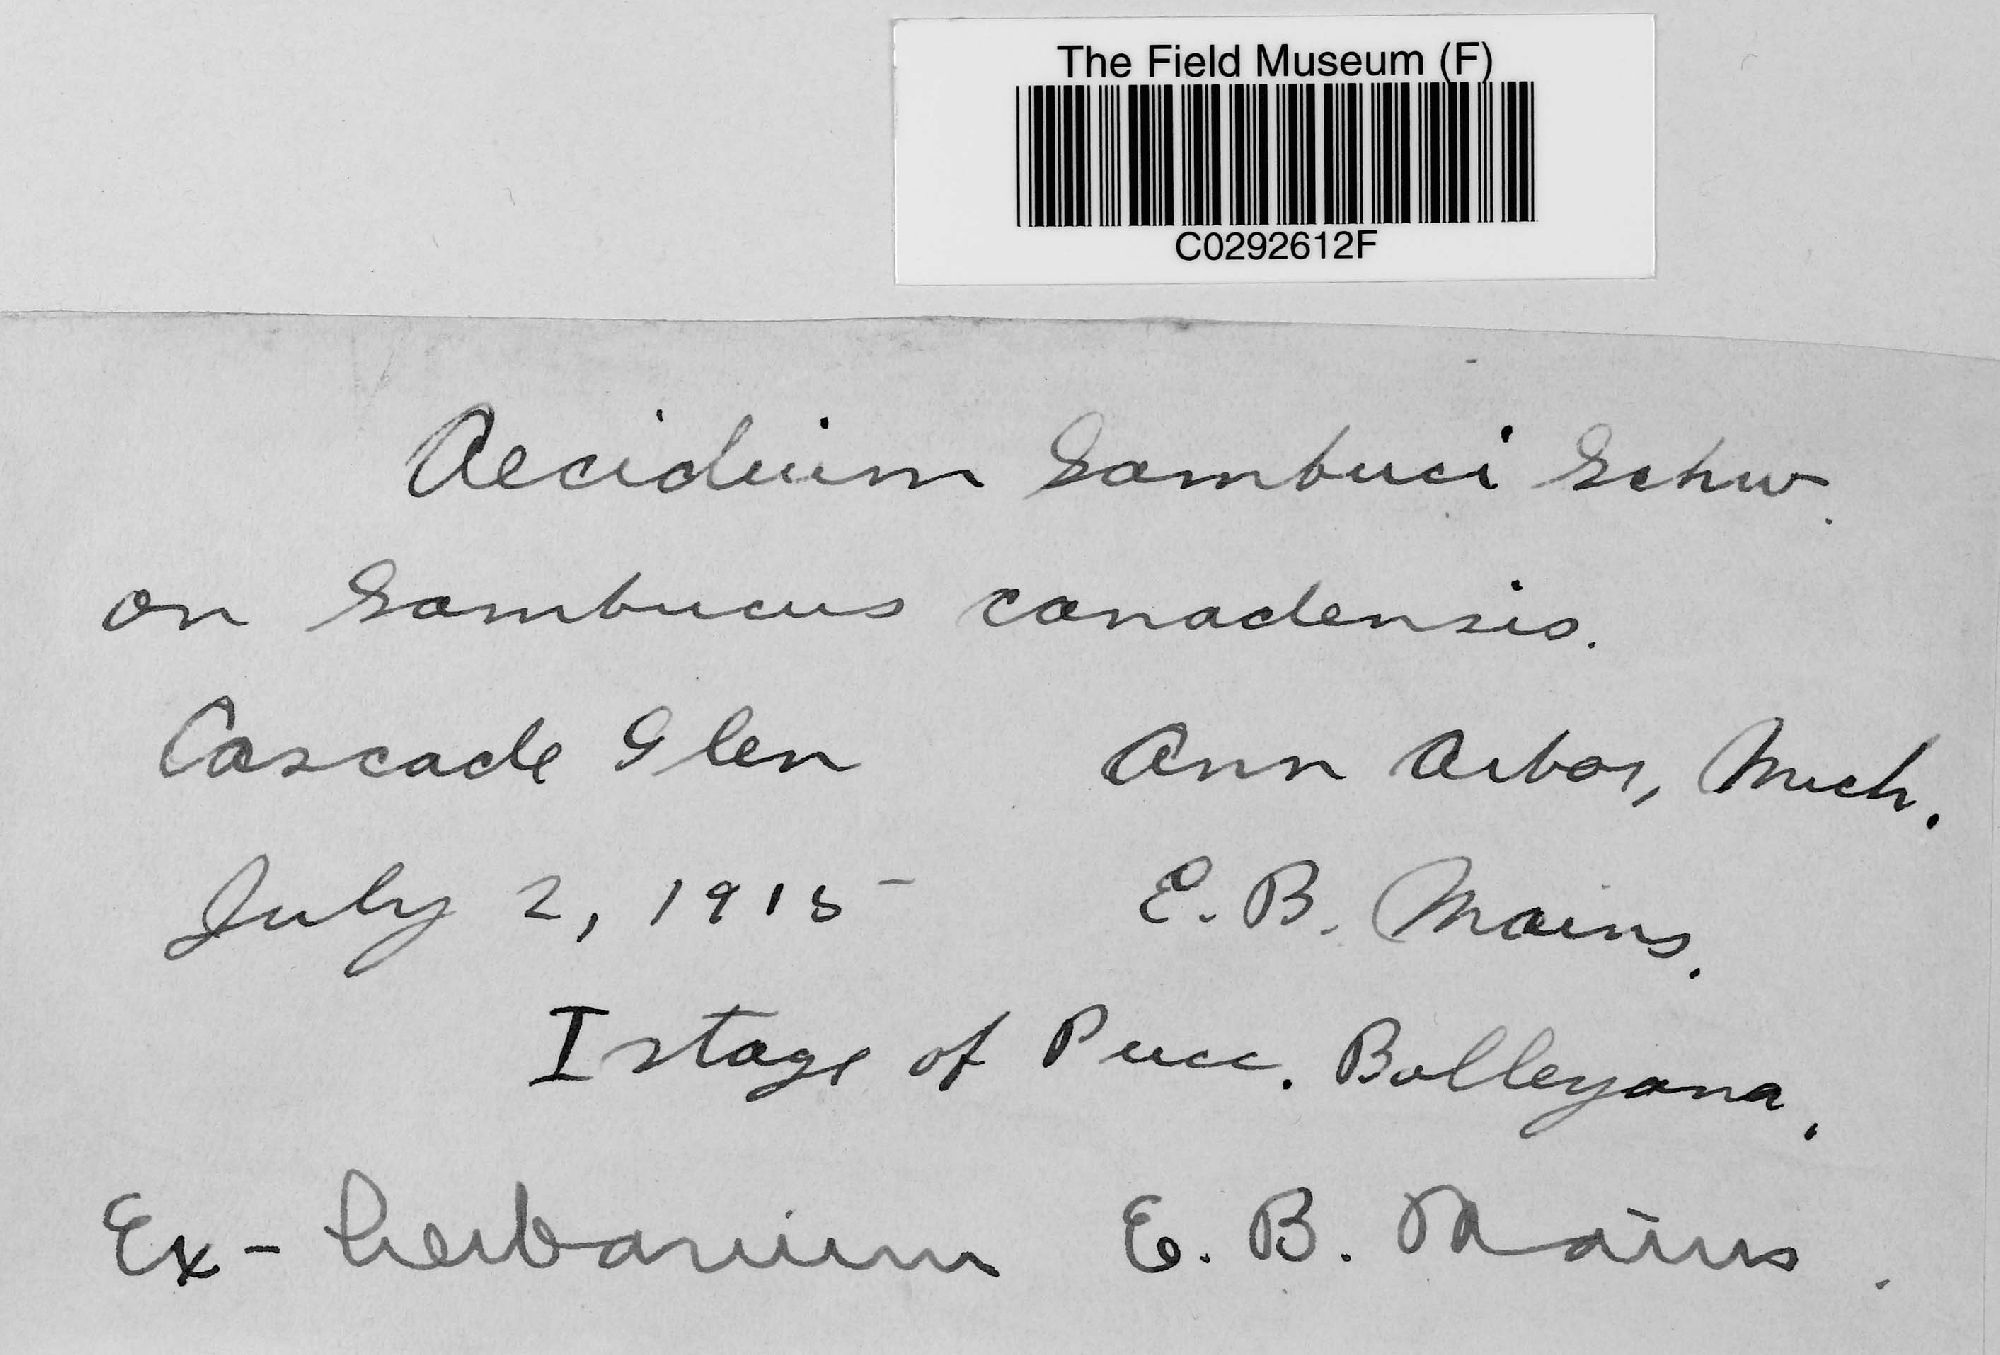 The Field Museum (F)
C0292612F
Aecidium Sambuci Schw.
on Sambucus canadensis.
Cascade Glen Ann Arbor, Mich.
July 2, 1915 E. B. Mains.
I stage of Pucc. Bolleyana.
Ex-herbarium E. B. Mains.